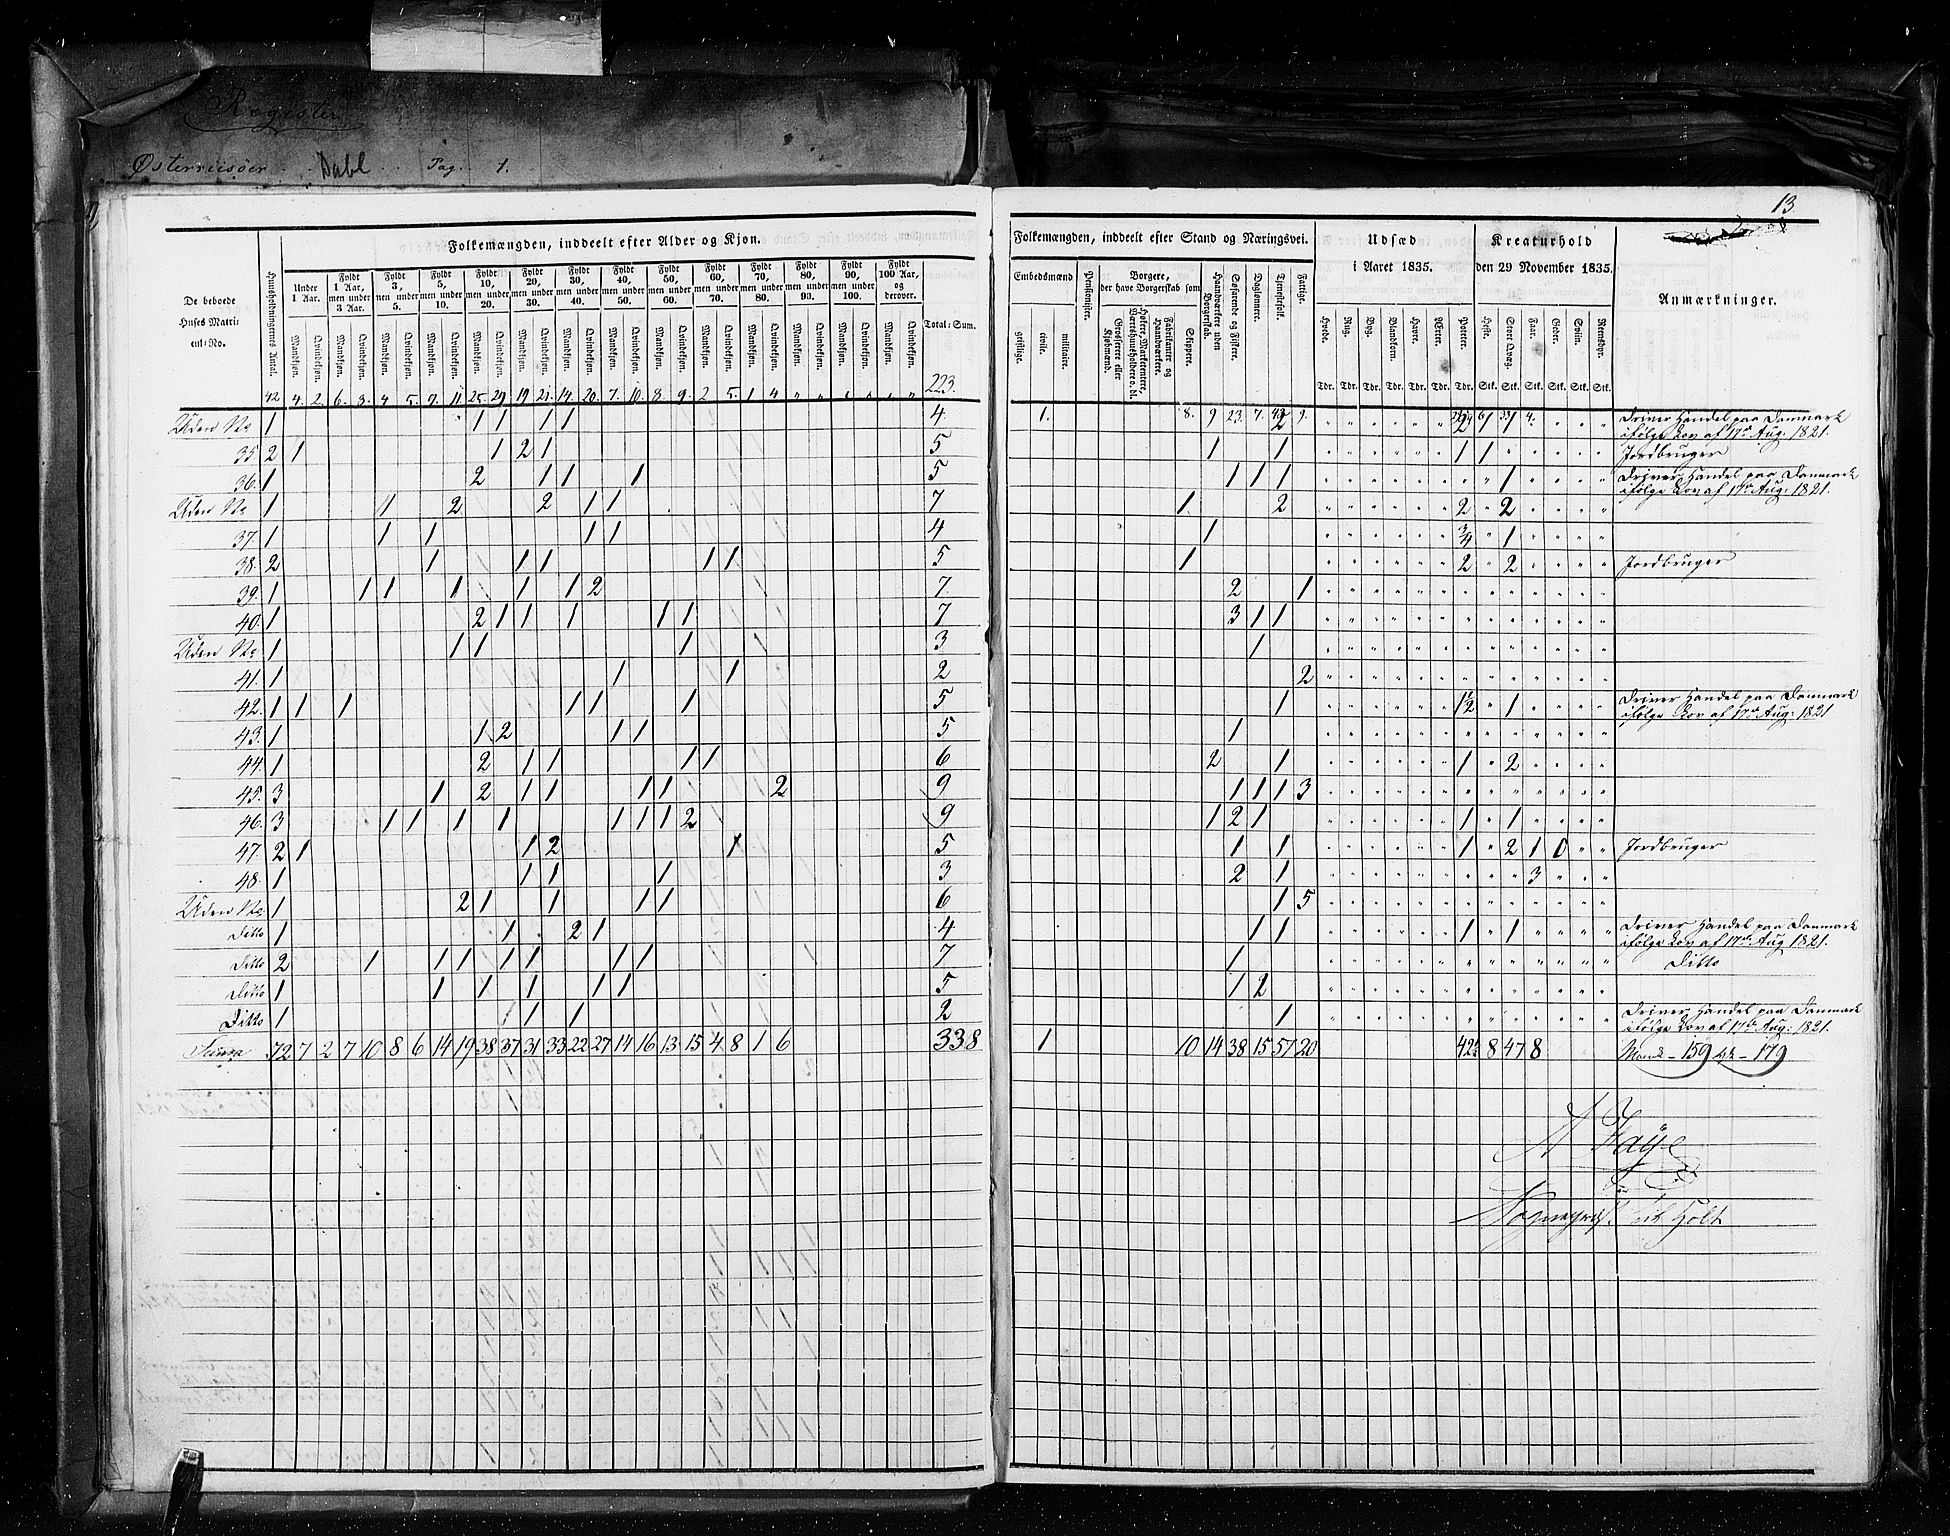 Register
Østerriisöer Dahl Pag. 1.
13
Folkemængden, inddeelt efter Alder og Kjøn.
De beboede Huses Matricul-No.
Huusholdningernes Antal.
Under 1 Aar.
Fyldt 1 Aar, men under 3 Aar.
Fyldt 3, men under 5.
Fyldt 5, men under 10.
Fyldt 10, men under 20.
Fyldt 20, men under 30.
Fyldt 30, men under 40.
Fyldt 40, men under 50.
Fyldt 50, men under 60.
Fyldt 60, men under 70.
Fyldt 70, men under 80.
Fyldt 80, men under 90.
Fyldt 90, men under 100.
Fyldt 100 Aar, og derover.
Total-Sum.
Mandkjøn. Qvindekjøn. Mandkjøn. Qvindekjøn. Mandkjøn. Qvindekjøn. Mandkjøn. Qvindekjøn. Mandkjøn. Qvindekjøn. Mandkjøn. Qvindekjøn. Mandkjøn. Qvindekjøn. Mandkjøn. Qvindekjøn. Mandkjøn. Qvindekjøn. Mandkjøn. Qvindekjøn. Mandkjøn. Qvindekjøn. Mandkjøn. Qvindekjøn. Mandkjøn. Qvindekjøn. Mandkjøn. Qvindekjøn.
42 4. 2. 6. 3. 4 5. 9. 11 25. 29 19 21. 14. 20. 7. 10. 8. 9. 2 5. 1 4 " " " " " " 223.
Uden No 1 1 1 1 1 4
35. 2 1 1 2 1 5
36. 1 2 1 1 1 5
Uden No 1 1 2 2 1 1 7
37. 1 1 1 1 1 4
38. 2 1 1 1 1 1 5
39. 1 1 1 1 1 1 2 7.
40. 1 2 1 1 1 1 1 7
Uden No 1 1 1 1 3
41. 1 1 1 2
42. 1 1 1 1 1 1 5
43. 1 1 2 1 1 5
44. 1 2 1 1 1 1 6
45. 3 1 2 1 1 1 1 2 9
46. 3 1 1 1 1 1 1 1 2 9
47. 2 1 1 2 1 5
48. 1 1 1 1 3
Uden No. 1 2 1 1 1 1 6
Ditto 1 1 2 1 4
Ditto 2 1 1 1 1 1 1 1 7
Ditto 1 1 1 1 1 1 5
Ditto 1 1 1 2
Summa 72 7 2 7 10 8 6 14 19 38 37 31 33 22 27 14 16 13 15 4 8 1 6 338
Folkemængden, inddeelt efter Stand og Næringsvei.
Embedsmænd
geistlige. civile. militaire.
Pensionister.
Borgere, der have Borgerskab som
Grosserere eller Kjøbmænd.
Høkere, Marketentere, Værtshuusholdere o. dl.
Fabrikanter og Haandværkere.
Skippere.
Haandværkere uden Borgerskab.
Søfarende og Fiskere.
Daglønnere.
Tjenestefolk.
Fattige.
Udsæd i Aaret 1835.
Hvede. Rug. Byg. Blandkorn. Havre. Ærter. Poteter.
Tdr. Tdr. Tdr. Tdr. Tdr. Tdr. Tdr.
Kreaturhold den 29 November 1835.
Heste. Stort Qvæg. Faar. Geder. Sviin. Reensdyr.
Stk. Stk. Stk. Stk. Stk. Stk.
Anmærkninger.
1. 8. 9 23. 7. 9. 6 33 4.
Driver Handel paa Danmark
ifølge Lov af 17de Aug: 1821.
1 1 1 1 Jordbruger
1 1 1 1 Driver Handel paa Danmark
ifølge Lov af 17de Aug: 1821.
1. 2 2 2
1 3/4 1
1 2 2 Jordbruger
2 1
3 1 1
1
2
1 1½ 1 Driver Handel paa Danmark
ifølge Lov af 17de Aug: 1821
1
2 1 1 2
1 1 1 3
1 2 1 1 1
1 1 1 2 1 0 Jordbruger
2 1 3
1 5
1 1 1 1 Driver Handel paa Danmark
ifølge Lov af 17de Aug 1821.
1 Ditto
1 2
1 Driver Handel paa Danmark
ifølge Lov af 17de Aug: 1821.
1 10 14 38 15 57 20 8 47 8 Mand – 159 – 179
A Faye
Sognepræst Holt